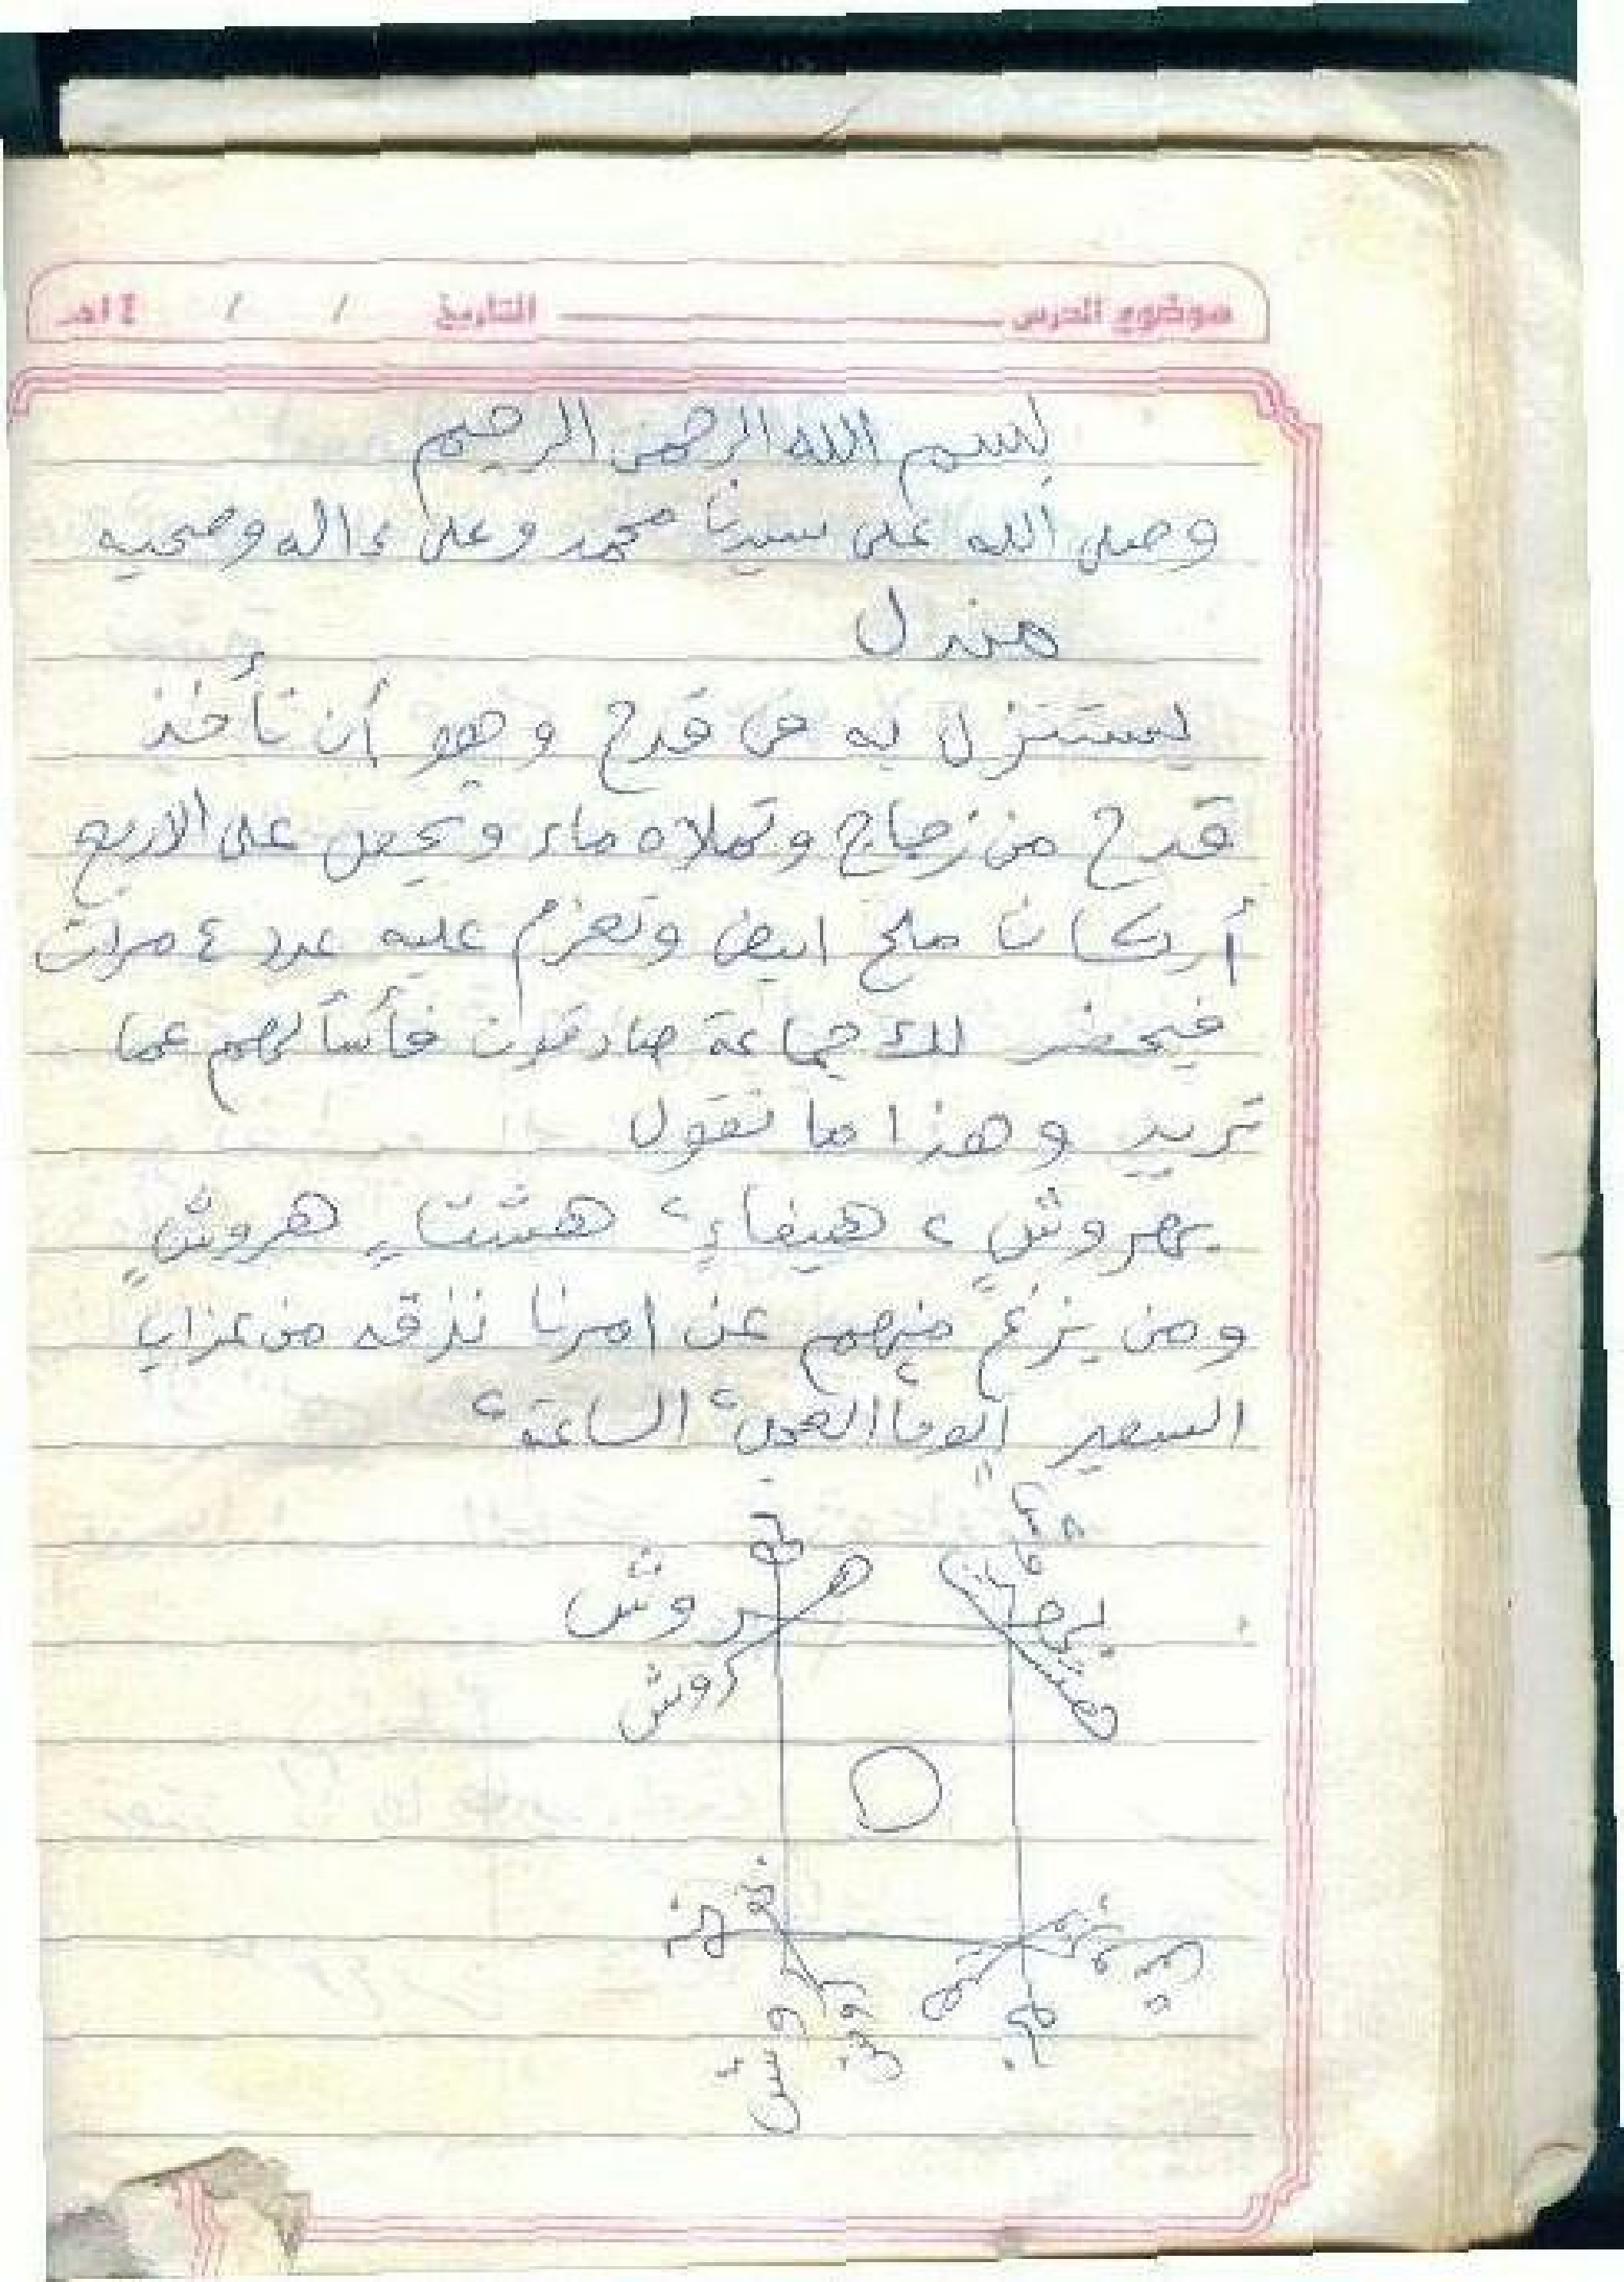 موضوع الدرس التاريخ / / ١٤هـ
بسم الله الرحمن الرحيم
وصلى الله على سيدنا محمد وعلى ءاله وصحبه
مندل
يستنزل به في قدح وهو أن تأخذ
قدح من زجاج وتملاه ماء وتجعل على الاربع
أركان ملح ابيض وتعزم عليه عدد ٤ مرات
فيحضر لك جماعة صادقون فأسألهم عما
تريد وهذا ما تقول
بهروشٍ ٢ هيفاءٍ ٢ هشتاءٍ هروشٍ
ومن يزغ منهم عن امرنا نذقه من عذاب
السعير ألوحا العجل ٢ الساعة ٢
هروش
روش